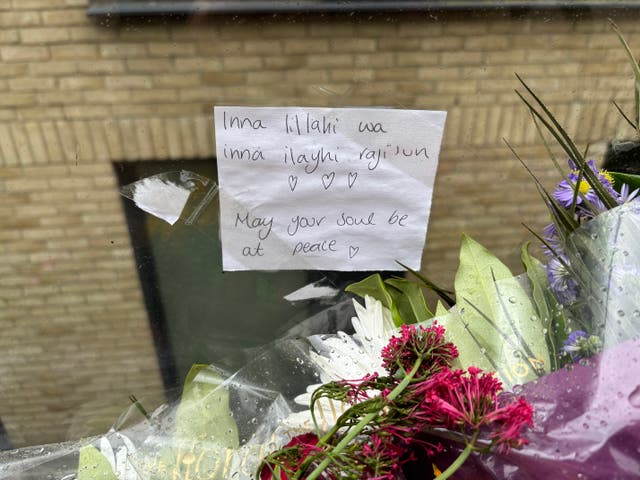 Inna lillahi wa
inna ilayhi raji'un
♡ ♡ ♡
May your soul be
at peace ♡